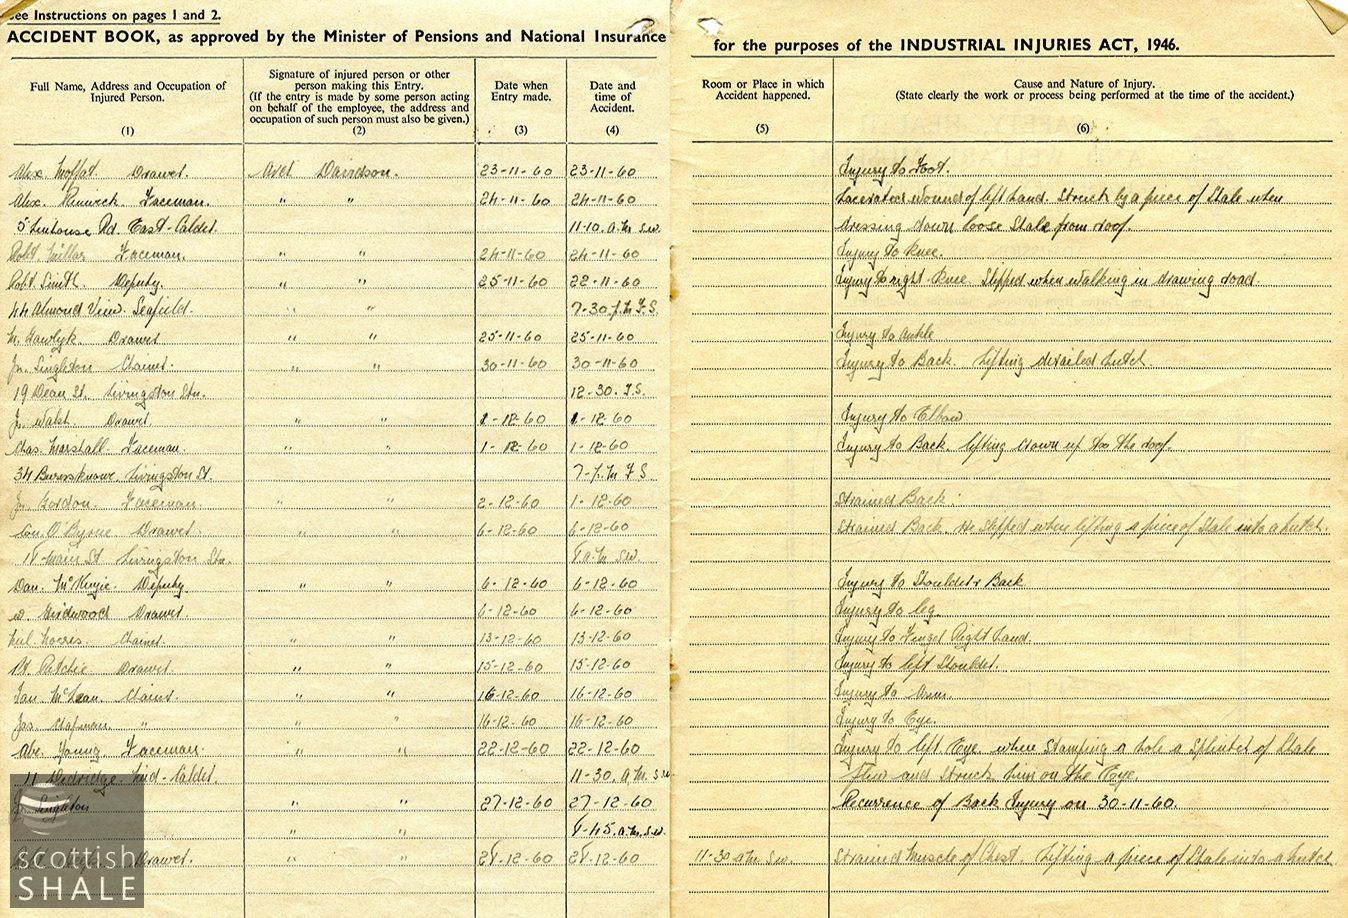 See Instructions on pages 1 and 2.
ACCIDENT BOOK, as approved by the Minister of Pensions and National Insurance for the purposes of the INDUSTRIAL INJURIES ACT, 1946.
Full Name, Address and Occupation of Injured Person. (1)
Signature of injured person or other person making this Entry. (If the entry is made by some person acting on behalf of the employee, the address and occupation of such person must also be given.) (2)
Date when Entry made. (3)
Date and time of Accident. (4)
Room or Place in which Accident happened. (5)
Cause and Nature of Injury. (State clearly the work or process being performed at the time of the accident.) (6)
Alex. Moffat. Drawer. Davidson. 23-11-60 23-11-60 Injury to Foot.
Alex. Renwick. Faceman. " " 24-11-60 24-11-60 Lacerated wound of left hand. Struck by a piece of Shale when
5 Linhouse Rd. East-Calder. 11-10. A.M. S.W. dressing down loose Shale from roof.
Robt. Millar Faceman. " " 24-11-60 24-11-60 Injury to knee.
Robt. Smith. Deputy. " " 25-11-60 22-11-60 Injury to right-knee. Slipped when walking in drawing road.
44 Almond View. Seafield. " " 7-30. P.M. F.S.
M. Drawer " " 25-11-60 25-11-60 Injury to Ankle
Jn. Singleton Chainer. " " 30-11-60 30-11-60 Injury to Back. Lifting derailed hutch.
19 Dean St. Livingston Stn. 12-30. F.S.
Jn. Walsh. Drawer. " " 1-12-60 1-12-60 Injury to Elbow
Chas. Marshall. Faceman. " " 1-12-60 1-12-60 Injury to Back. lifting crown up to the roof.
34 Burnsknowe. Livingston St. 7-P.M F.S.
Jn. Gordon. Faceman. " " 2-12-60 1-12-60 Strained Back.
Con. O'Byrne. Drawer. " " 6-12-60 6-12-60 Strained Back. He slipped when lifting a piece of Shale into a hutch.
18 Main St Livingston Stn. 8 a.M. S.W.
Dan. McKenzie. Deputy " " 6-12-60 6-12-60 Injury to Shoulder & Back
W. Girdwood Drawer. 6-12-60 6-12-60 Injury to leg.
Neil. Chainer. " " 13-12-60 13-12-60 Injury to Finger Right Hand.
Ritchie Drawer. " " 15-12-60 15-12-60 Injury to left Shoulder.
Ian. McLean. Chainer. " " 16-12-60 16-12-60 Injury to Arm.
Jas. Chapman " " " 16-12-60 16-12-60 Injury to Eye.
Alex. Young Faceman. " " 22-12-60 22-12-60 Injury to left Eye. when stamping a hole a Splinter of Shale
11 Dedridge. Mid-Calder. 11-30. A.M. S.W. flew and Struck him on the Eye.
Jn. Singleton " " 27-12-60 27-12-60 Recurrence of Back Injury on 30-11-60.
" " 8-45. a.M. S.W.
Drawer. " " 28-12-60 28-12-60 11-30 a.M. S.W. Strained Muscle of Chest. Lifting a piece of Shale into a hutch
Scottish
SHALE